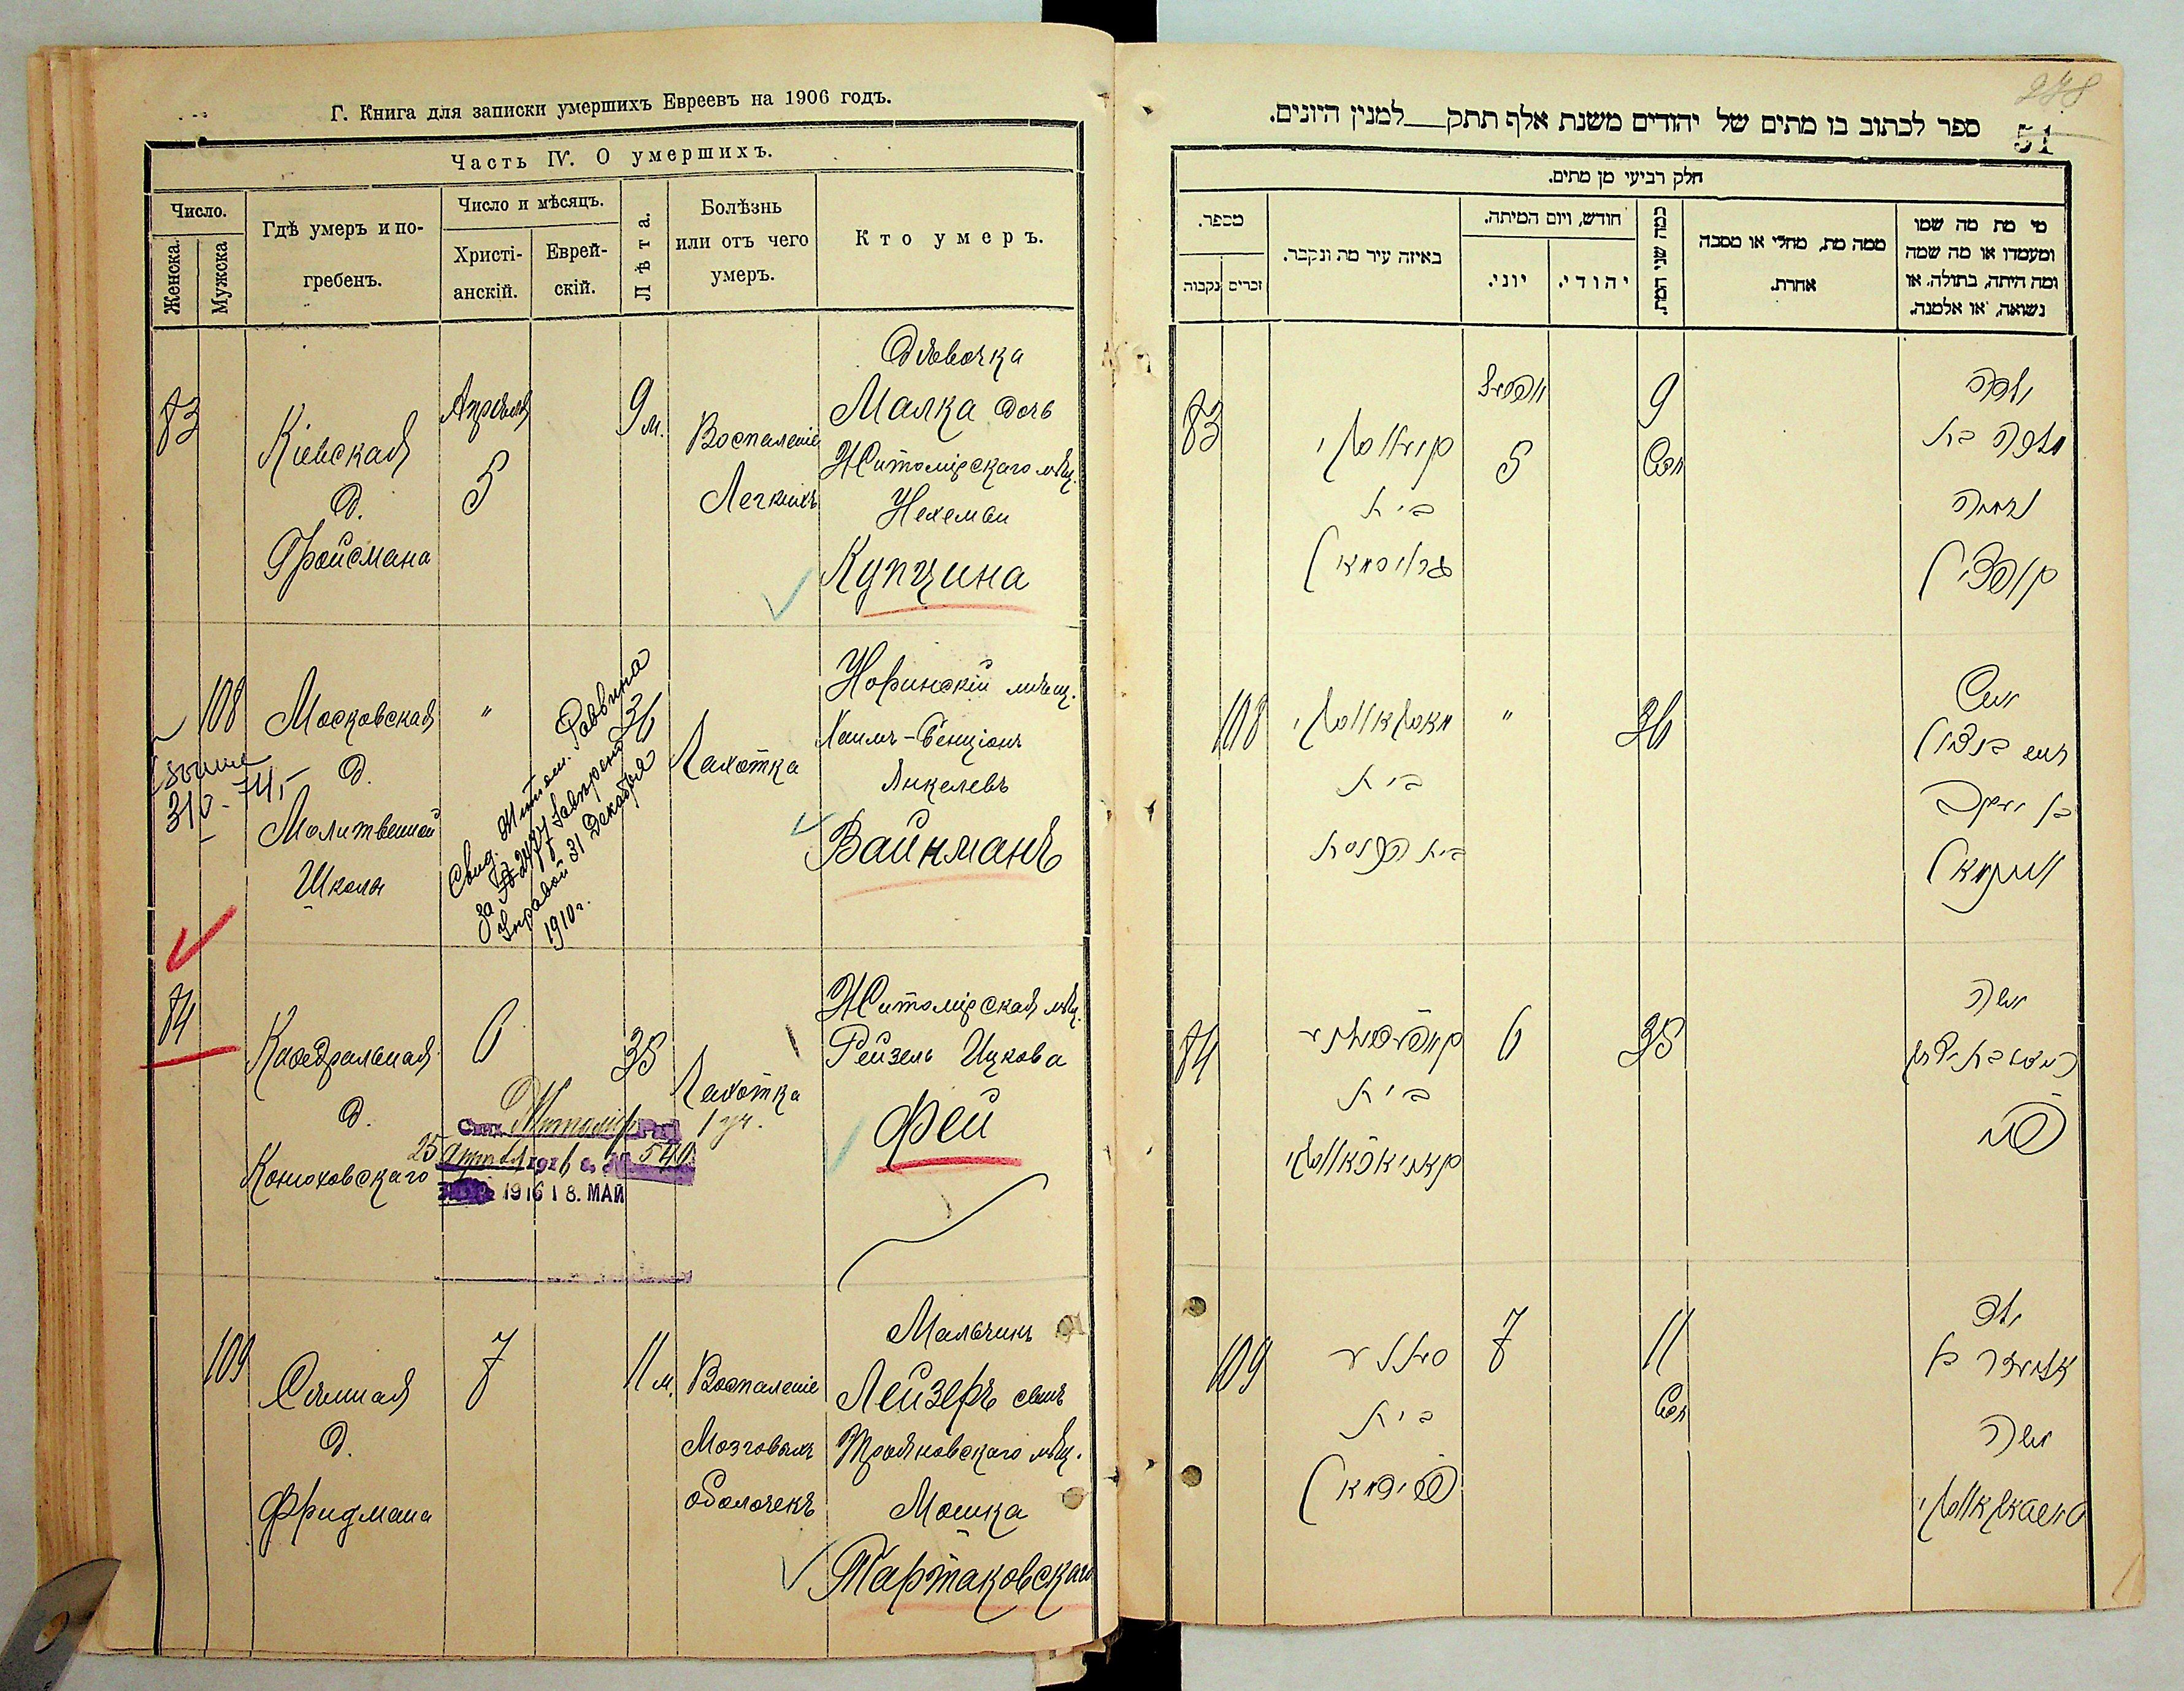 Г. Книга для записки умершихъ Евреевъ на 1906 годъ.
Часть IV. О умершихъ.
Число.
Женска.
Мужска
Гдѣ умеръ и по-
гребенъ.
Число и мѣсяцъ.
Христі-
анскій.
Еврей-
скій.
Лѣта.
Болѣзнь
или отъ чего
умеръ.
Кто умеръ.
83
Кіевская
д.
Фройсмана
Апрѣля
5
9 м.
Воспаленіе
Легкихъ
Дѣвочка
Малка дочь
Житомірскаго мѣщ.
Нехеміи
Купчина
108
310-74,-
Московская
д.
Молитвенной
Школы
"
Свид. Житом. Раввина
за № 2471
Управой 31 Декабря
1910 г.
36
Чахотка
Норинскій мѣщ.
Хаимъ-Бенціонъ
Янкелевъ
Вайнманъ
84
Каѳедральная
д.
Конюховскаго
6
35
Чахотка
1 уч.
Житомірская мѣщ.
Рейзель Ицкова
Фей
Житомір
25 Апрѣля 1916 г. № 540
1916 18. МАЙ
109
Сѣнная
д.
Фридмана
7
11 м.
Воспаленіе
Мозговыхъ
оболочекъ
Мальчикъ
Лейзеръ сынъ
Трояновскаго мѣщ.
Мошка
Тартаковскаго
278
51
ספר לכתוב בו מתים של יהודים משנת אלף תתק___למנין היונים.
חלק רביעי מן מתים.
מספר.
זכרים
נקבות
באיזה עיר מת ונקבר.
חודש, ויום המיתה.
יוני.
יהודי.
כמה שני המת.
ממה מת, מחלי או מסבה
אחרת.
מי מת מה שמו
ומעמדו או מה שמה
ומה היתה, בתולה, או
נשואה, או אלמנה.
83
קיעווסקי
בית
גרויסמאן
אפריל
5
9
חדש
ילדה
מלכה בת
נחמיה
קופצין
108
מאסקאווסקי
בית
בית הכנסת
"
36
איש
חיים בנציון
בן יעקב
וויינמאן
84
בית
קאניאכאווסקי
6
35
אשה
רייזל בת יצחק
פיי
109
סאנע
בית
פרידמאן
7
11
חדש
ילד
אליעזר בן
משה
טארטאקאווסקי